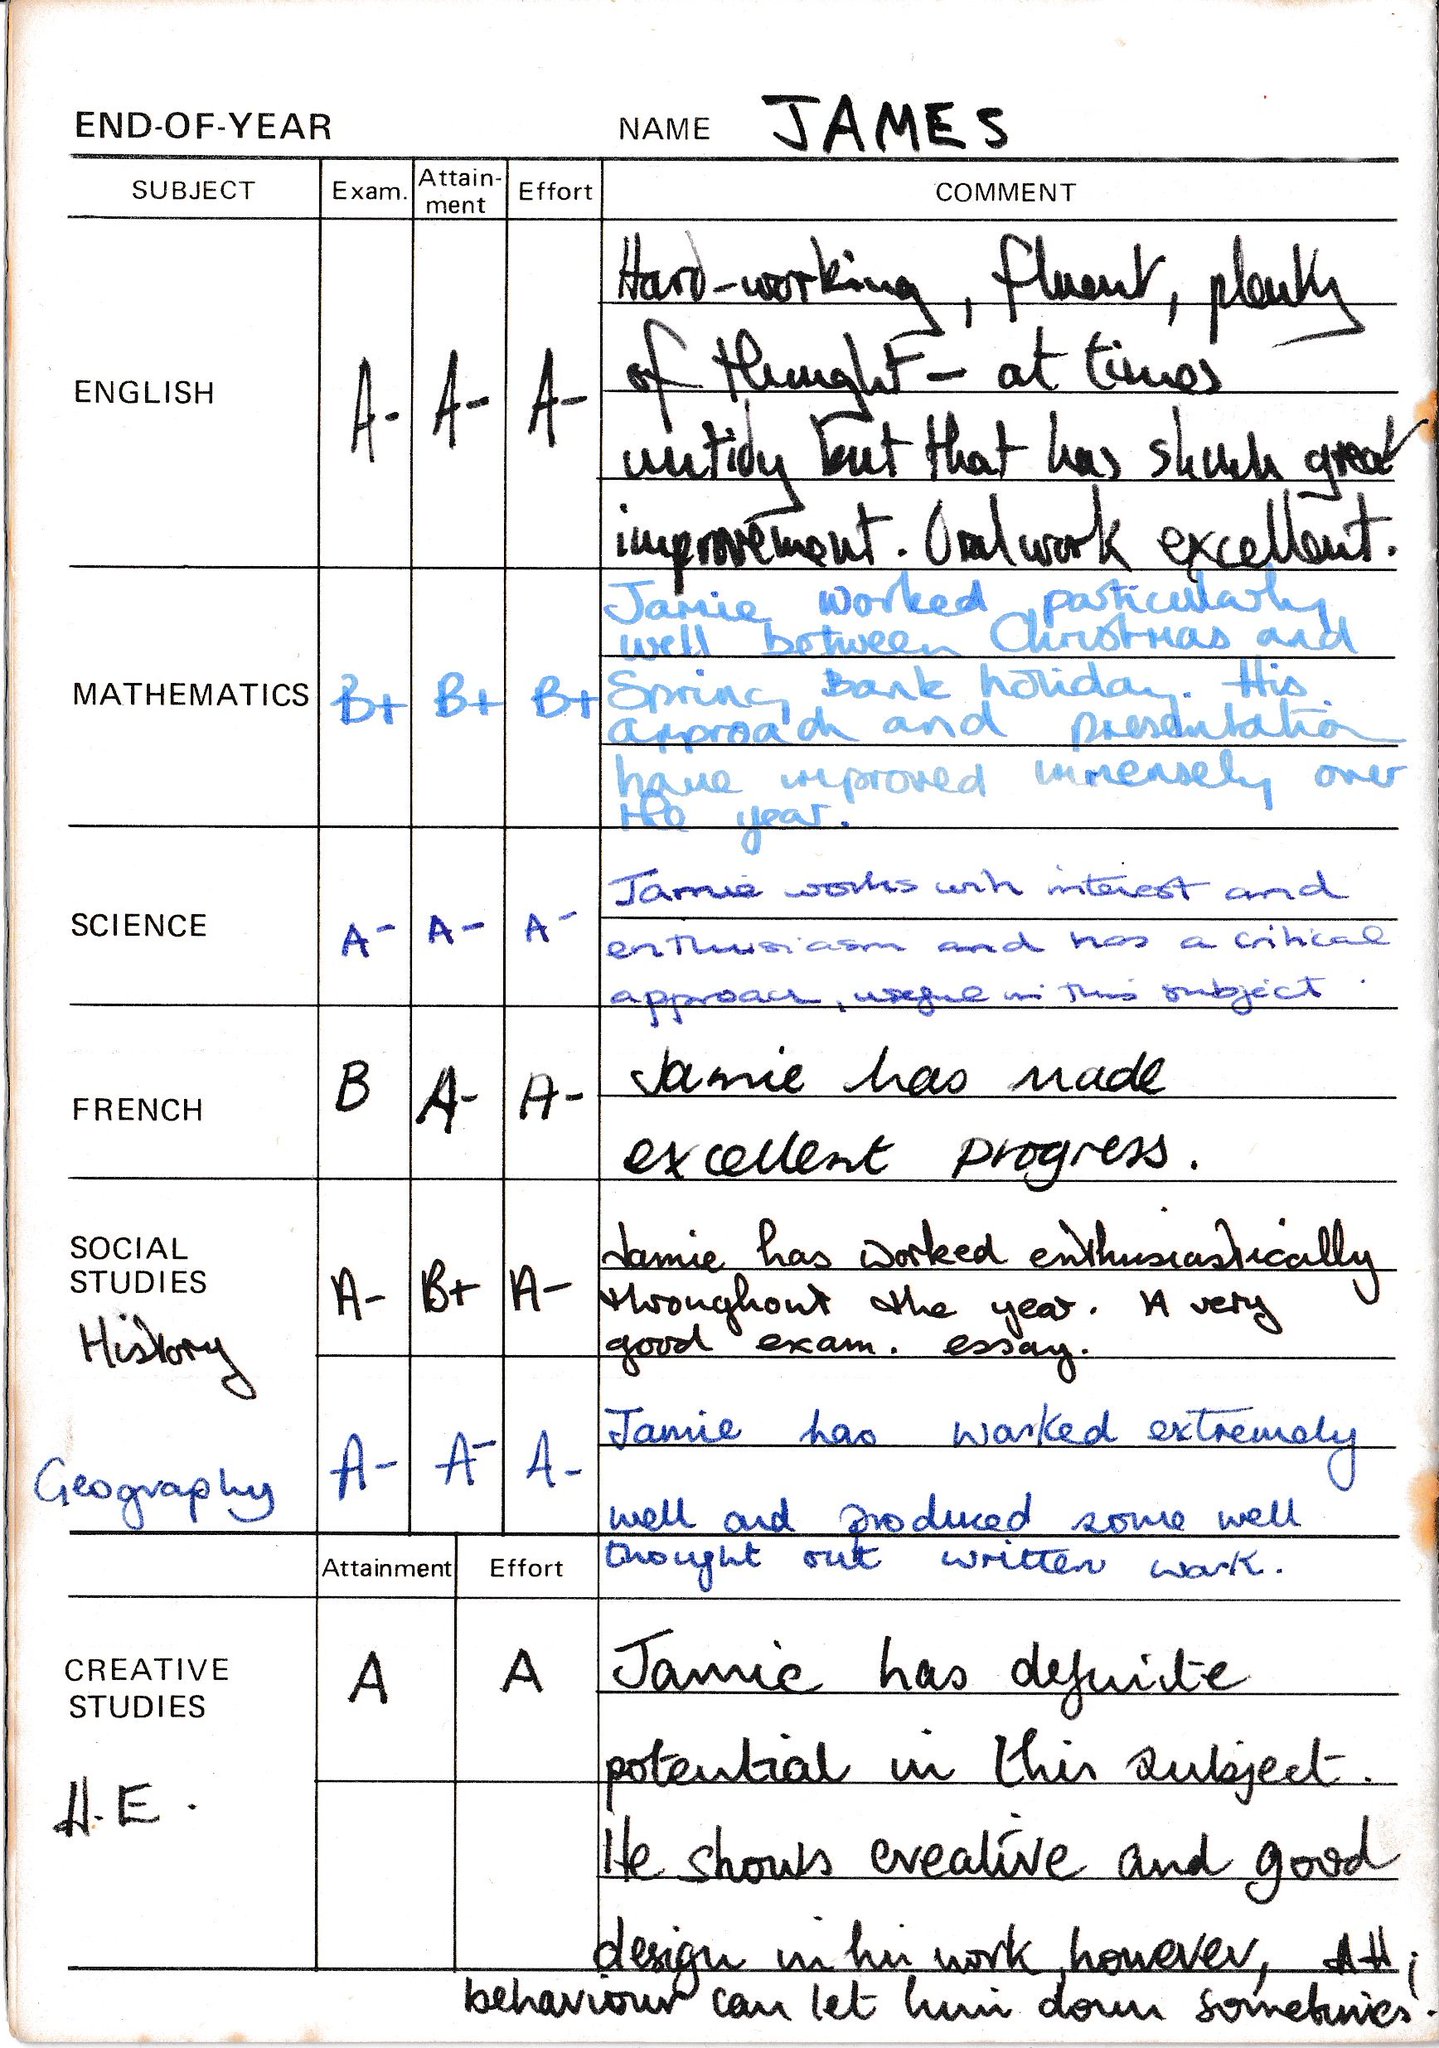 END-OF-YEAR NAME JAMES
SUBJECT Exam. Attain-ment Effort COMMENT
ENGLISH A- A- A-
Hard-working, fluent, plenty
of thought - at times
untidy but that has shown great
improvement. Oral work excellent.
MATHEMATICS B+ B+ B+
Jamie worked particularly
well between Christmas and
Spring Bank holiday. His
approach and presentation
have improved immensely over
the year.
SCIENCE A- A- A-
Jamie works with interest and
enthusiasm and has a critical
approach, useful in this subject.
FRENCH B A- A-
Jamie has made
excellent progress.
SOCIAL
STUDIES
History A- B+ A-
Jamie has worked enthusiastically
throughout the year. A very
good exam. essay.
Geography A- A- A-
Jamie has worked extremely
well and produced some well
thought out written work.
Attainment Effort
CREATIVE
STUDIES
H.E. A A
Jamie has definite
potential in this subject.
He shows creative and good
design in his work, however,
behaviour can let him down sometimes.